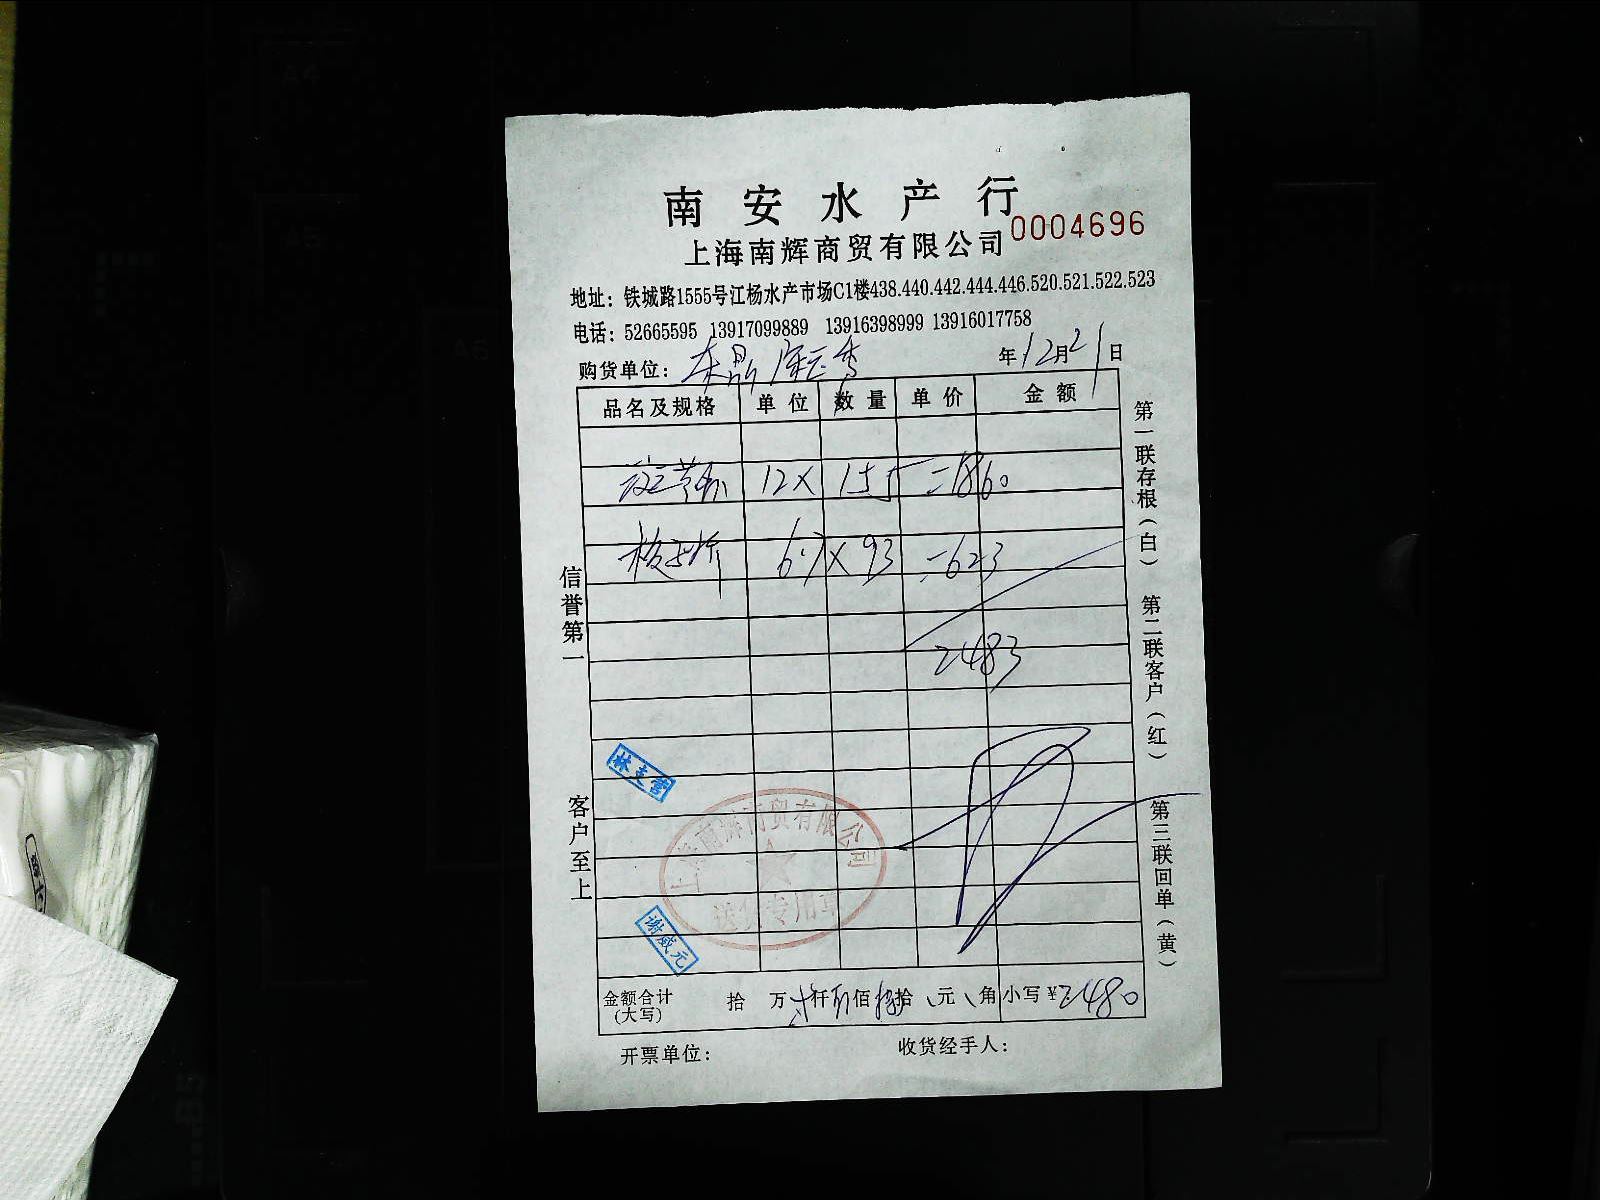 南安水产行
0004696
上海南辉商贸有限公司
地址：铁城路1555号江杨水产市场C1楼438.440.442.444.446.520.521.522.523
电话：52665595 13917099889 13916398999 13916017758
购货单位：
年12月21日
品名及规格 单位 数量 单价 金额
12X 155 =1860
6.7X 93 =623
2483
林支营
上海南辉商贸有限公司
送货专用章
谢威元
金额合计(大写) 拾 万 仟 佰 拾 元 角 小写￥2480
开票单位：
收货经手人：
信誉第一
客户至上
第一联存根（白）
第二联客户（红）
第三联回单（黄）